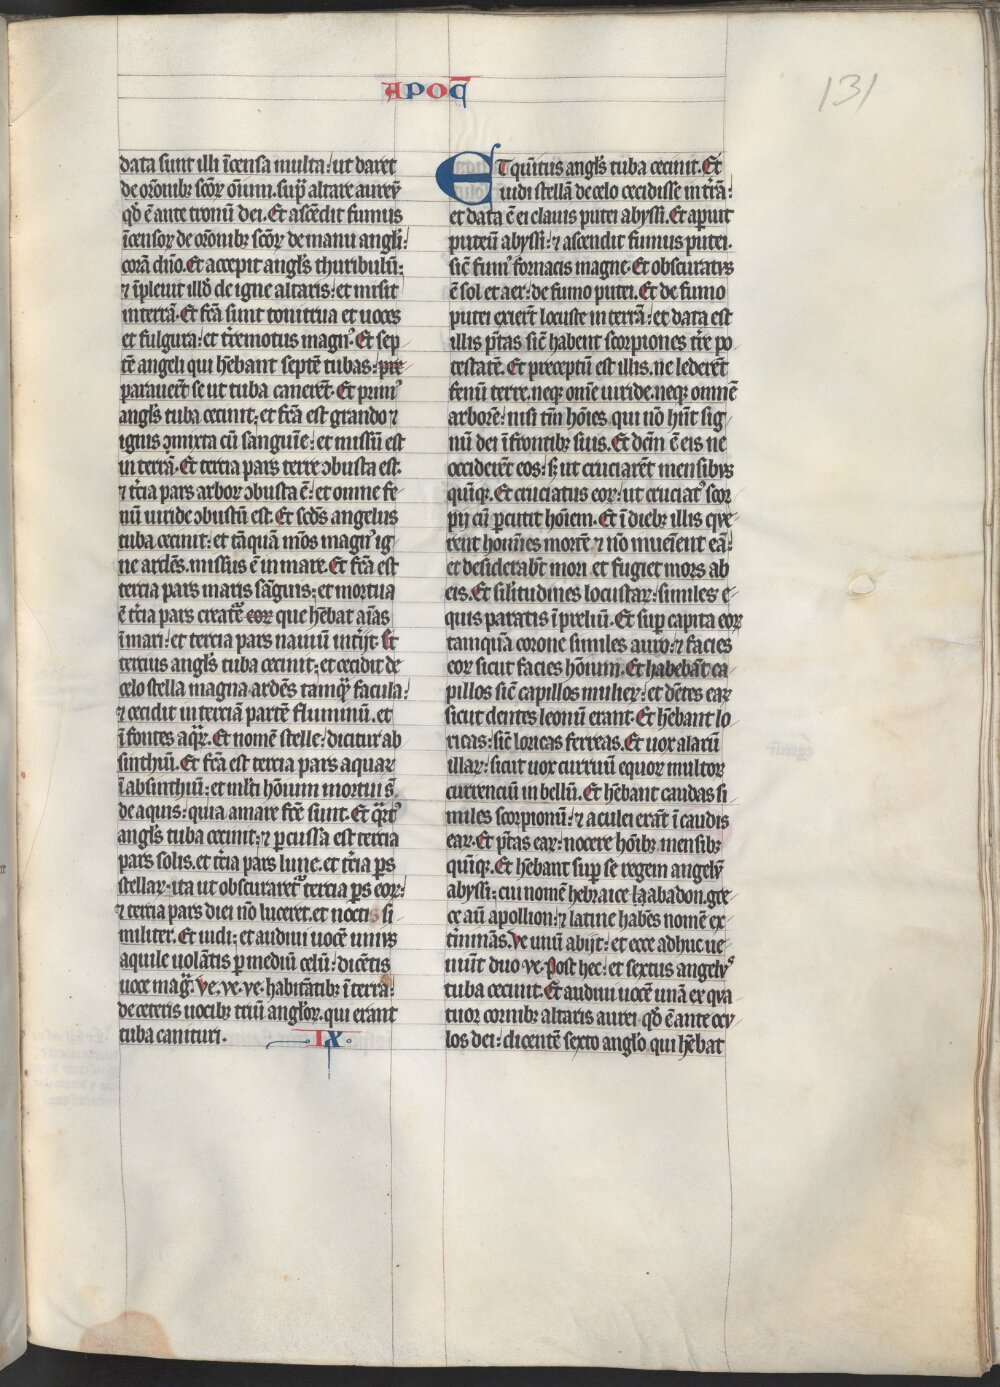 APOC̄
131
data sunt illi ĩcensa multa: ut daret
de orõnibꝫ scõꝝ oĩum. suꝑ altare aureũ
qð ẽ ante tronũ dei. Et ascẽdit fumus
ĩcensoꝝ de orõnibꝫ scõꝝ de manu angli:
corã dño. Et accepit angl̃s thuribulũ:
⁊ ĩpleuit illð de igne altaris: et misit
in terrã. Et fc̃a sunt tonitrua et uoces
et fulgura: et t̃remotus magnꝰ. Et sep
tẽ angeli qui hẽbant septẽ tubas: pre
parauer̃t se ut tuba canerẽt. Et primꝰ
angl̃s tuba cecinit: et fc̃a est grando ⁊
ignis ꝯmixta cũ sanguĩe: et missũ est
in terrã. Et tercia pars terre ꝯbusta est.
⁊ t̃cia pars arboꝝ ꝯbusta ẽ: et omne fe
nũ uiride ꝯbustũ est. Et scðs angelus
tuba cecinit: et tãquã mõs magnꝰ ig
ne ardẽs. missus ẽ in mare. Et fc̃a est
tercia pars maris sãguis: et mortua
ẽ t̃cia pars creatᵉ̃ eoꝝ que hẽbat aĩas
ĩ mari: et tercia pars nauiũ int̃ijt. Et
tercius angl̃s tuba cecinit: et cecidit de
celo stella magna ardẽs tamqᷓ facula:
⁊ cecidit in terciã partẽ fluminũ. et
ĩ fontes aqᷓꝝ. Et nomẽ stelle: dicitur ab
sinthiũ. Et fc̃a est tercia pars aquaꝝ
ĩ absinthiũ: et ml̃ti hõium mortui s̃.
de aquis: quia amare fc̃e sunt. Et qᷓrtꝰ
angl̃s tuba cecinit: ⁊ ꝑcussa est tercia
pars solis. et t̃cia pars lune. et t̃cia ps
stellaꝝ. ita ut obscuraret̃ tercia ps eoꝝ:
⁊ tercia pars diei nõ luceret. et noctis si
militer. Et uidi: et audiui uocẽ unius
aquile uolãtis ꝑ mediũ celũ: dicẽtis
uoce magᷓ: ve. ve. ve. habitãtibꝫ ĩ terra:
de ceteris uocibꝫ triũ angl̃oꝝ. qui erant
tuba canituri.
IX.
ET quĩtus angl̃s tuba cecinit. Et
uidi stellã de celo cecidisse in t̃rã:
et data ẽ ei clauis putei abyssi. Et aperuit
puteũ abyssi: ⁊ ascendit fumus putei.
sic̃ fumꝰ fornacis magne. Et obscuratus
ẽ sol et aer: de fumo putei. Et de fumo
putei exier̃t locuste in terrã: et data est
illis p̃tas sic̃ habent scorpiones t̃re po
testatẽ. Et preceptũ est illis. ne lederẽt
fenũ terre. neqꝫ omẽ uiride. neqꝫ omnẽ
arborẽ: nisi tm̃ hõies qui nõ hñt sig
nũ dei ĩ frontibꝫ suis. Et dcm̃ ẽ eis ne
occiderẽt eos: sꝫ ut cruciarẽt mensibus
quĩqꝫ. Et cruciatus eoꝝ: ut cruciatꝰ scor
pij cũ ꝑcutit hõiem. Et ĩ diebꝫ illis que
rent homĩes mortẽ ⁊ nõ inueĩent eã:
et desiderabt̃ mori et fugiet mors ab
eis. Et sil̃itudines locustaꝝ: similes e
quis paratis ĩ preliũ. Et suꝑ capita eoꝝ
tamquã corone similes auro: ⁊ facies
eoꝝ sicut facies hõinum. Et habebãt ca
pillos sic̃ capillos mulieꝝ: et dẽtes eaꝝ
sicut dentes leonũ erant. Et hẽbant lo
ricas: sic̃ loricas ferreas. Et uox alarũ
illaꝝ: sicut uox curruũ equoꝝ multoꝝ
currenciũ in bellũ. Et hẽbant caudas si
miles scorpionũ: ⁊ aculei erãt ĩ caudis
eaꝝ. Et p̃tas eaꝝ: nocere hõibꝫ mensibꝫ
quĩqꝫ. Et hẽbant suꝑ se regem angelũ
abyssi: cui nomẽ hebraice laabadon. gre
ce aũt apollion: ⁊ latine habẽs nomẽ ex
t̃minãs. Ve unũ abijt: et ecce adhuc ue
niũt duo ve. Post hec: et sextus angelus
tuba cecinit. Et audiui uocẽ unã ex qua
tuor cornibꝫ altaris aurei qð ẽ ante ocu
los dei: dicentẽ sexto angl̃o qui hẽbat